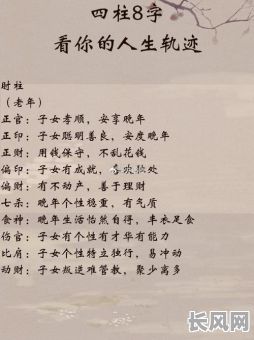 四柱8字
看你的人生轨迹
时柱
（老年）
正官：子女孝顺，安享晚年
正印：子女聪明善良，安度晚年
正财：用钱保守，不乱花钱
偏印：子女有成就，喜欢独处
偏财：有不动产，善于理财
七杀：晚年个性稳重，有气质
食神：晚年生活怡然自得，丰衣足食
伤官：子女有个性有才华有能力
比肩：子女个性特立独行，易冲动
动财：子女叛逆难管教，聚少离多
长风网